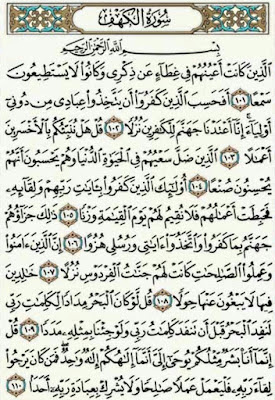 سُورَةُ الْكَهْفِ
بِسْمِ اللَّهِ الرَّحْمَٰنِ الرَّحِيمِ
الَّذِينَ كَانَتْ أَعْيُنُهُمْ فِي غِطَاءٍ عَن ذِكْرِي وَكَانُوا لَا يَسْتَطِيعُونَ
سَمْعًا ١٠١ أَفَحَسِبَ الَّذِينَ كَفَرُوا أَن يَتَّخِذُوا عِبَادِي مِن دُونِي
أَوْلِيَاءَ إِنَّا أَعْتَدْنَا جَهَنَّمَ لِلْكَافِرِينَ نُزُلًا ١٠٢ قُلْ هَلْ نُنَبِّئُكُم بِالْأَخْسَرِينَ
أَعْمَالًا ١٠٣ الَّذِينَ ضَلَّ سَعْيُهُمْ فِي الْحَيَوٰةِ الدُّنْيَا وَهُمْ يَحْسَبُونَ أَنَّهُمْ
يُحْسِنُونَ صُنْعًا ١٠٤ أُولَٰئِكَ الَّذِينَ كَفَرُوا بِآيَاتِ رَبِّهِمْ وَلِقَائِهِ
فَحَبِطَتْ أَعْمَالُهُمْ فَلَا نُقِيمُ لَهُمْ يَوْمَ الْقِيَامَةِ وَزْنًا ١٠٥ ذَٰلِكَ جَزَاؤُهُمْ
جَهَنَّمُ بِمَا كَفَرُوا وَاتَّخَذُوا آيَاتِي وَرُسُلِي هُزُوًا ١٠٦ إِنَّ الَّذِينَ آمَنُوا
وَعَمِلُوا الصَّالِحَاتِ كَانَتْ لَهُمْ جَنَّاتُ الْفِرْدَوْسِ نُزُلًا ١٠٧ خَالِدِينَ
فِيهَا لَا يَبْغُونَ عَنْهَا حِوَلًا ١٠٨ قُل لَّوْ كَانَ الْبَحْرُ مِدَادًا لِّكَلِمَاتِ رَبِّي
لَنَفِدَ الْبَحْرُ قَبْلَ أَن تَنفَدَ كَلِمَاتُ رَبِّي وَلَوْ جِئْنَا بِمِثْلِهِ مَدَدًا ١٠٩ قُلْ
إِنَّمَا أَنَا بَشَرٌ مِّثْلُكُمْ يُوحَىٰ إِلَيَّ أَنَّمَا إِلَٰهُكُمْ إِلَٰهٌ وَاحِدٌ فَمَن كَانَ يَرْجُوا
لِقَاءَ رَبِّهِ فَلْيَعْمَلْ عَمَلًا صَالِحًا وَلَا يُشْرِكْ بِعِبَادَةِ رَبِّهِ أَحَدًا ١١٠